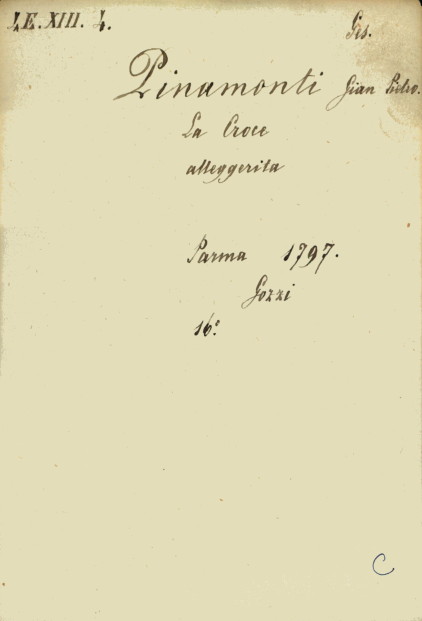 4E.XIII. 4.
Gs.
Pinamonti Gian Pietro.
La Croce
alleggerita
Parma 1797.
Gozzi
16.º
C